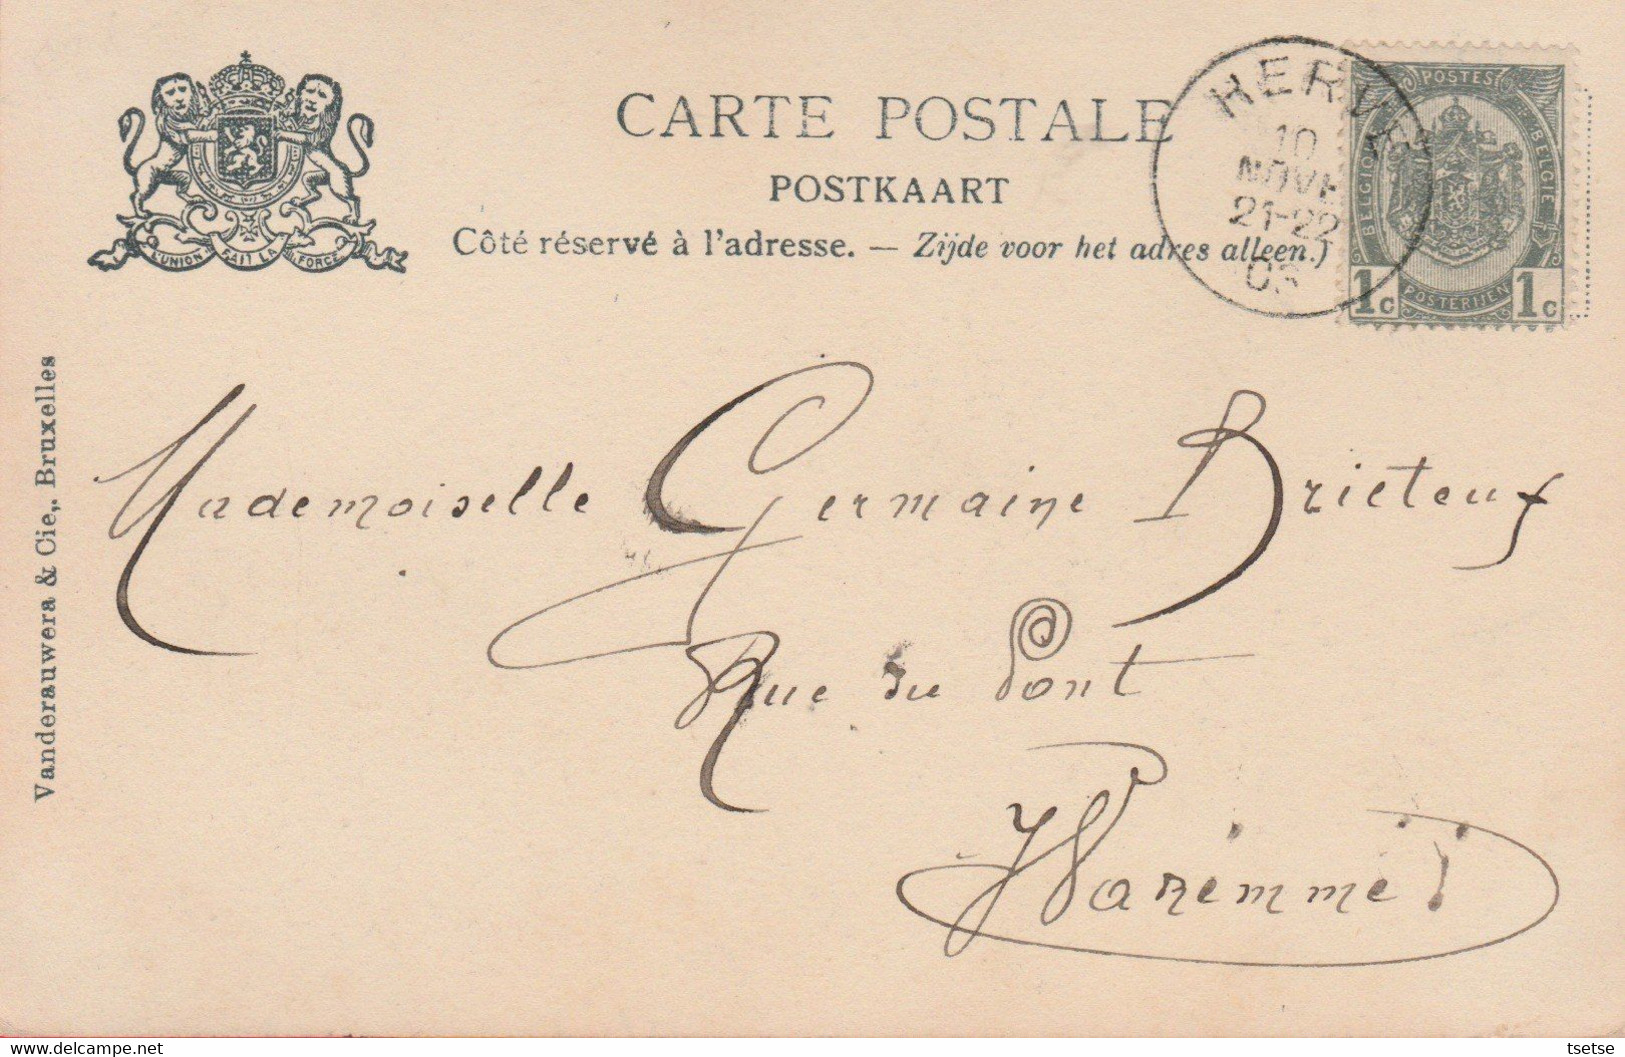 CARTE POSTALE
POSTKAART
Côté réservé à l'adresse. — Zijde voor het adres alleen.)
L'UNION FAIT LA FORCE
HERVE
10
NOVE
21-22
POSTES
BELGIQUE
BELGIË
1c POSTERIJEN 1c
Vanderauwera & Cie,, Bruxelles
Mademoiselle Germaine
Rue du Pont
Waremme
tsetse